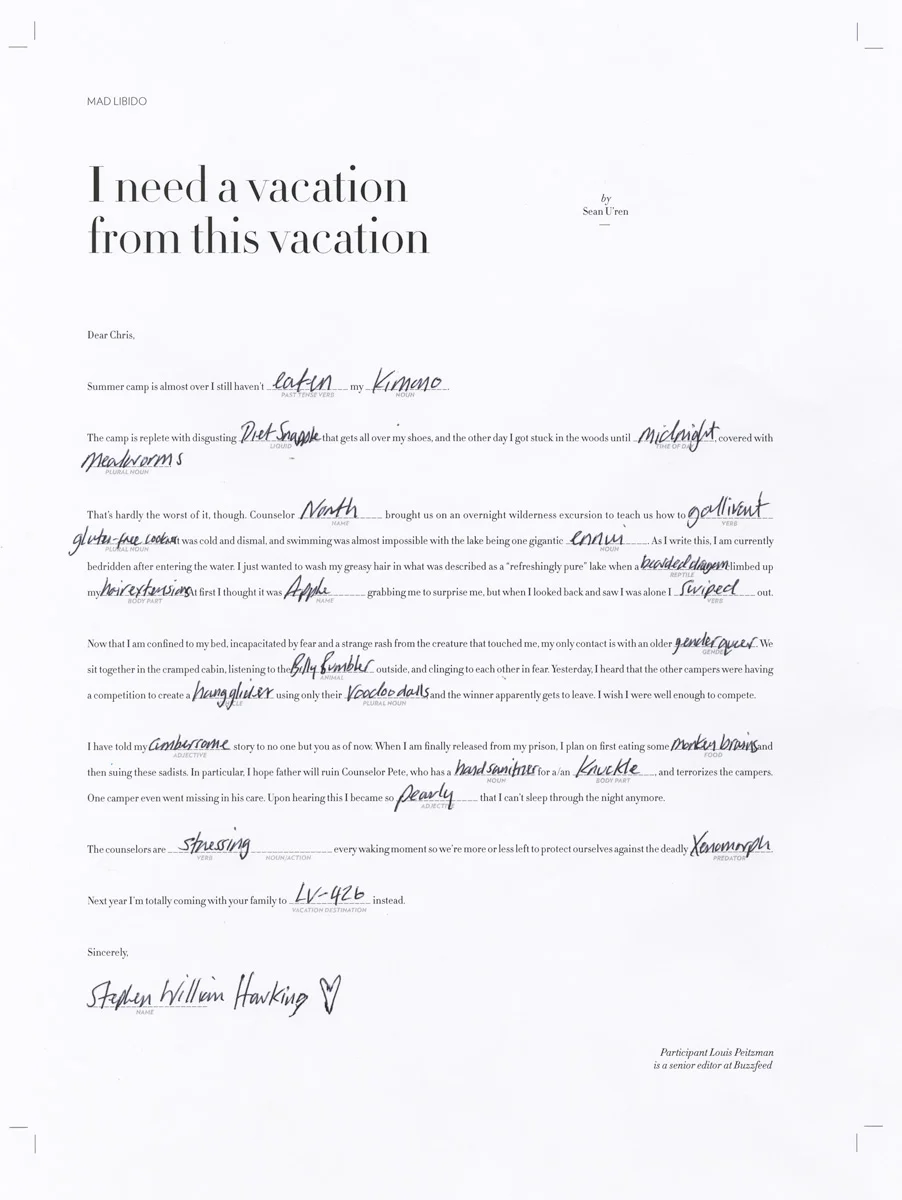 MAD LIBIDO
I need a vacation
from this vacation
by
Sean U'ren
Dear Chris,
Summer camp is almost over I still haven't eaten my Kimono.
PAST TENSE VERB NOUN
The camp is replete with disgusting Diet Snapple that gets all over my shoes, and the other day I got stuck in the woods until midnight, covered with
LIQUID TIME OF DAY
Mealworms
PLURAL NOUN
That's hardly the worst of it, though. Counselor North brought us on an overnight wilderness excursion to teach us how to gallivent
NAME VERB
gluten-free cookies It was cold and dismal, and swimming was almost impossible with the lake being one gigantic ennui. As I write this, I am currently
PLURAL NOUN NOUN
bedridden after entering the water. I just wanted to wash my greasy hair in what was described as a “refreshingly pure” lake when a bearded dragon climbed up
REPTILE
my hair extensions At first I thought it was Apple grabbing me to surprise me, but when I looked back and saw I was alone I swiped out.
BODY PART NAME VERB
Now that I am confined to my bed, incapacitated by fear and a strange rash from the creature that touched me, my only contact is with an older genderqueer. We
GENDER
sit together in the cramped cabin, listening to the Billy Bumbler outside, and clinging to each other in fear. Yesterday, I heard that the other campers were having
ANIMAL
a competition to create a hang glider using only their Voodoo dolls and the winner apparently gets to leave. I wish I were well enough to compete.
VEHICLE PLURAL NOUN
I have told my cumbersome story to no one but you as of now. When I am finally released from my prison, I plan on first eating some monkey brains and
ADJECTIVE FOOD
then suing these sadists. In particular, I hope father will ruin Counselor Pete, who has a hand sanitizer for a/an Knuckle, and terrorizes the campers.
NOUN BODY PART
One camper even went missing in his care. Upon hearing this I became so pearly that I can't sleep through the night anymore.
ADJECTIVE
The counselors are stressing every waking moment so we're more or less left to protect ourselves against the deadly Xenomorph
VERB NOUN/ACTION PREDATOR
Next year I'm totally coming with your family to LV-426 instead.
VACATION DESTINATION
Sincerely,
Stephen William Hawking
NAME
Participant Louis Peitzman
is a senior editor at Buzzfeed